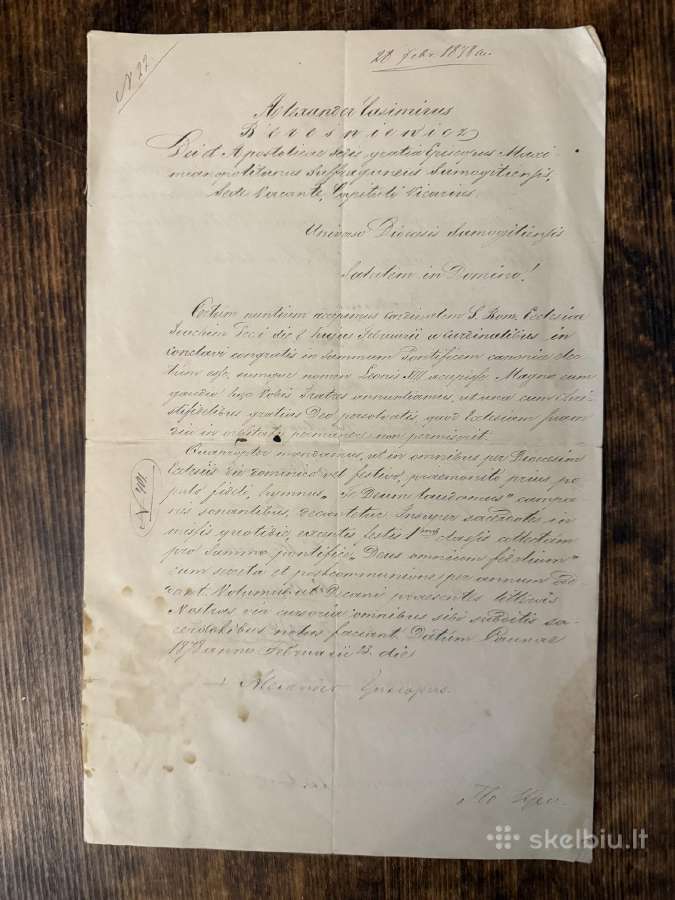 N 27
28 Febr. 1878 a.
Alexander Casimirus
Beresniewicz
Dei et Apostolicae Sedis gratia Episcopus Maxi-
mianopolitanus Suffraganeus Samogitiensis,
Sede Vacante, Capituli Vicarius.
Universo Diocesis Samogitiensis
Salutem in Domino!
Certum nuntium accepimus Cardinalem S. Rom. Ecclesiae
Joachim Pecci die 8 hujus Februarii a Cardinalibus in
conclavi congratis in Summum Pontificem canonice elec-
tum esse, eumque nomen Leonis XIII accepisse. Magno cum
gaudio hoc Vobis Fratres annuntiamus, ut una cum Chri-
stifidelibus gratias Deo persolvatis, quod Ecclesiam suam
diu in orbitate permanere non permiserit.
Quapropter mandamus, ut in omnibus per Diocesim
Ecclesiis die dominico vel festivo, praemonito prius po-
pulo fideli, hymnus „Te Deum laudamus" campa-
nis sonantibus, decantetur. Insuper sacerdotes in
missis quotidie, exceptis festis 1 classis collectam
pro Summo pontifice „Deus omnium fidelium"
cum secreta et postcommunione per annum
dicant. Volumus ut Decani praesentes litteras
Nostras via cursoria omnibus sibi subditis sa-
cerdotibus notas faciant. Datum Caunae
1878 anno Februarii 23 die
Alexander Episcopus.
N 401
skelbiu.lt